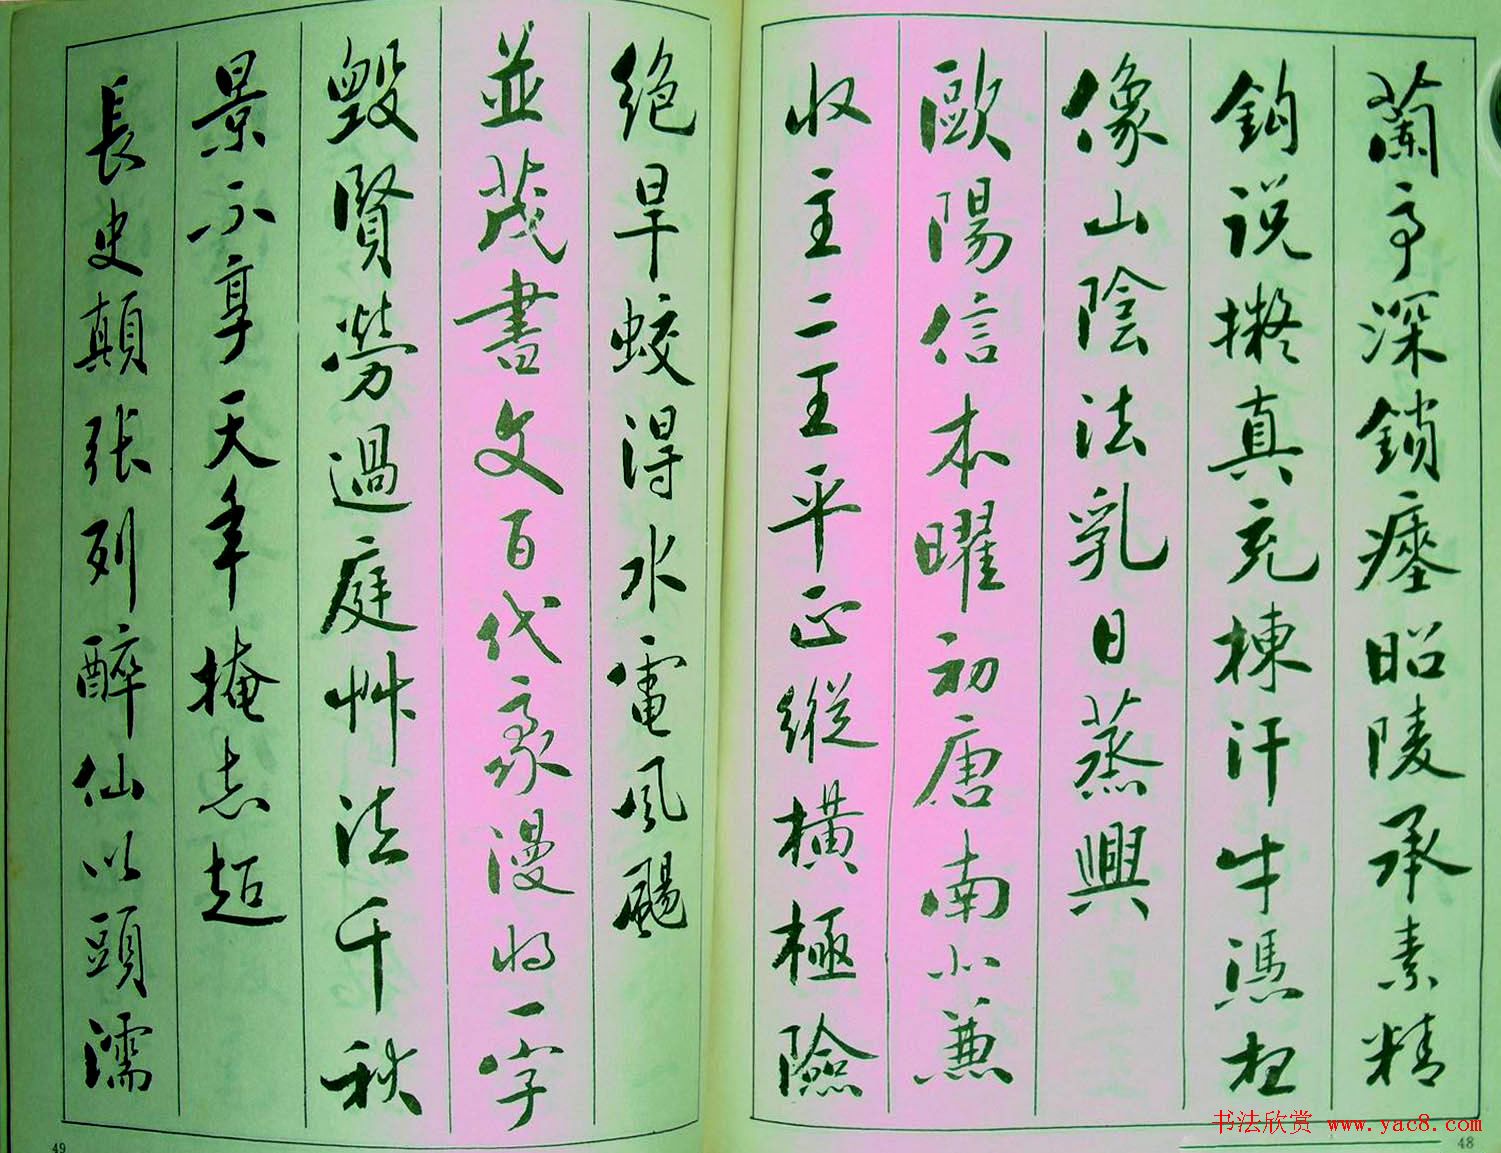 蘭亭深鎖瘞昭陵承素精
鈎说擬真充棟汗牛憑
像山陰法乳日蒸興
歐陽信本曜初唐南北兼
收主二王平正縱橫極險
绝旱蛟得水電風颺
並茂書文百代豪漫将一字
毀賢勞過庭艸法千秋
景不享天年掩志超
長史顛張列醉仙以頭濡
49
48
书法欣赏 www.yac8.com